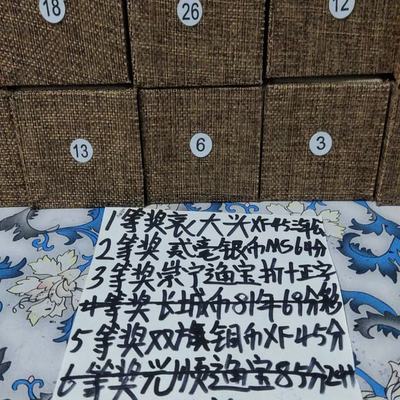 18
26
12
13
6
3
1等奖袁大头XF45三年
2等奖贰毫银币MS64分
3等奖崇宁通宝折十正字
4等奖长城币81年69分
5等奖双旗铜币XF45分
6等奖光顺通宝85分